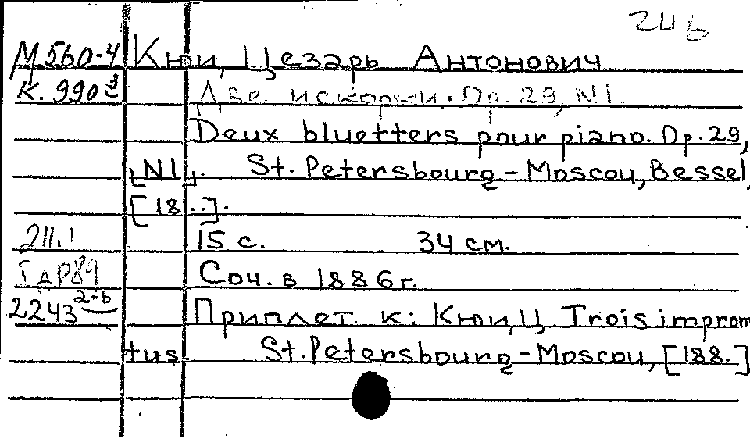 24б
М560-4 Кюи, Цезарь Антонович
К. 990 Две искорки. Op. 29, N1.
Deux bluetters pour piano. Op. 29,
[N1]. St. Petersbourg – Moscou, Bessel,
[18..].
211.1 15 с. 34 см.
Соч. в 1886 г.
2243 2-b Приплет. к: Кюи, Ц. Trois improm
tus St. Petersbourg – Moscou, [188.]